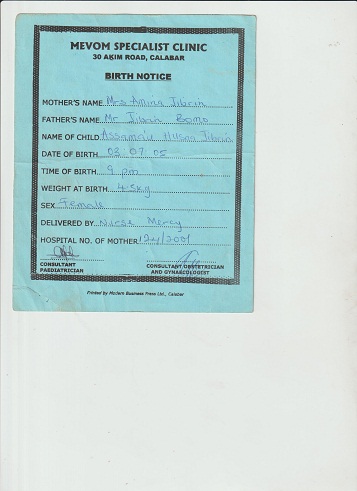 MEVOM SPECIALIST CLINIC
30 AKIM ROAD, CALABAR
BIRTH NOTICE
MOTHER'S NAME Mrs Amina Jibrin
FATHER'S NAME Mr Jibrin Bomo
NAME OF CHILD Jibrin
DATE OF BIRTH 03 07 05
TIME OF BIRTH 9 pm
WEIGHT AT BIRTH 4.5kg
SEX Female
DELIVERED BY Nurse Mercy
HOSPITAL NO. OF MOTHER 124/2001
CONSULTANT PAEDIATRICIAN
CONSULTANT OBSTETRICIAN AND GYNAECOLOGIST
Printed by Modern Business Press Ltd., Calabar